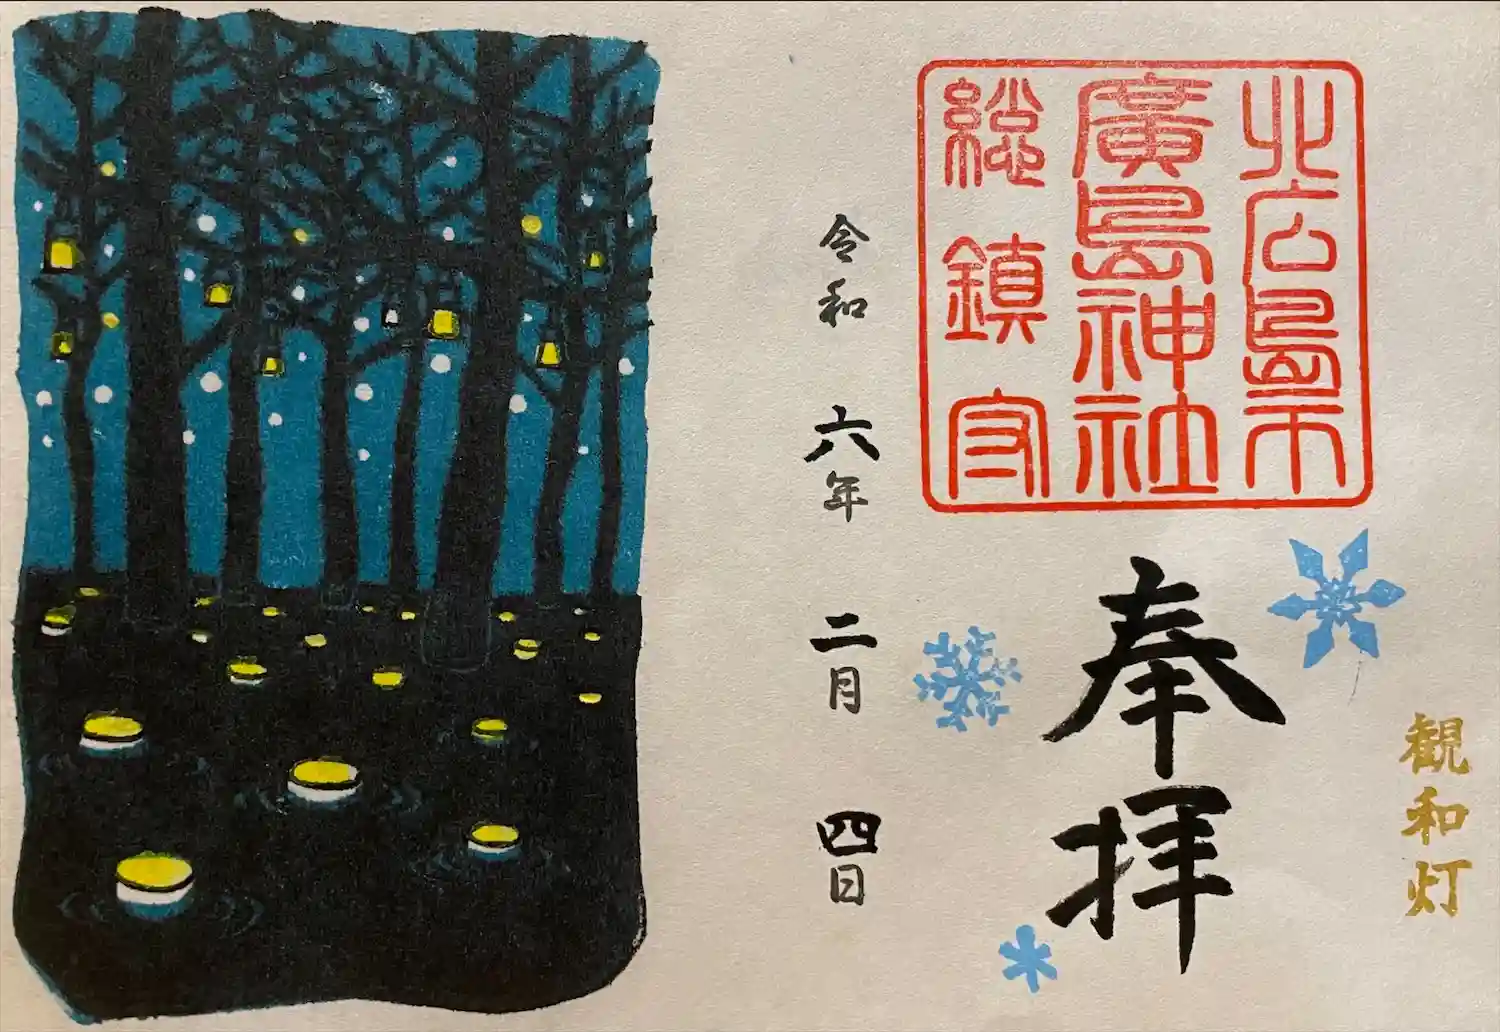 観和灯
北広島市
廣島神社
総鎮守
奉拝
令和六年二月四日